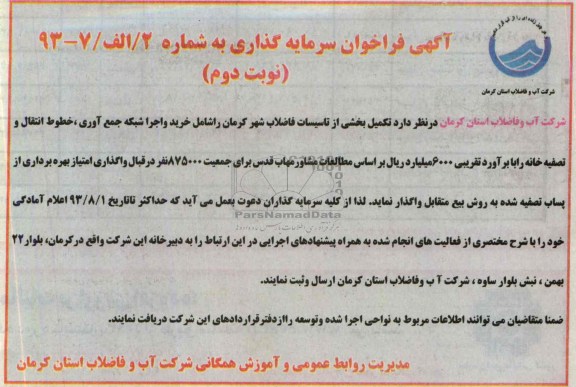 و من الماء کل شیء حی
شرکت آب و فاضلاب استان کرمان
آگهی فراخوان سرمایه گذاری به شماره ۲/الف/۷-۹۳
(نوبت دوم)
شرکت آب وفاضلاب استان کرمان درنظر دارد تکمیل بخشی از تاسیسات فاضلاب شهر کرمان راشامل خرید واجرا شبکه جمع آوری ،خطوط انتقال و
تصفیه خانه رابا برآورد تقریبی ۶۰۰۰میلیارد ریال بر اساس مطالعات مشاور مهاب قدس برای جمعیت ۸۷۵۰۰۰نفر درقبال واگذاری امتیاز بهره برداری از
پساب تصفیه شده به روش بیع متقابل واگذار نماید. لذا از کلیه سرمایه گذاران دعوت بعمل می آید که حداکثر تاتاریخ ۹۳/۸/۱ اعلام آمادگی
خود را با شرح مختصری از فعالیت های انجام شده به همراه پیشنهادهای اجرایی در این ارتباط را به دبیرخانه این شرکت واقع درکرمان، بلوار۲۲
بهمن ، نبش بلوار ساوه ، شرکت آ ب وفاضلاب استان کرمان ارسال وثبت نمایند.
ضمنا متقاضیان می توانند اطلاعات مربوط به نواحی اجرا شده وتوسعه رااز‌دفتر‌قراردادهای این شرکت دریافت نمایند.
مدیریت روابط عمومی و آموزش همگانی شرکت آب و فاضلاب استان کرمان
ParsNamadData